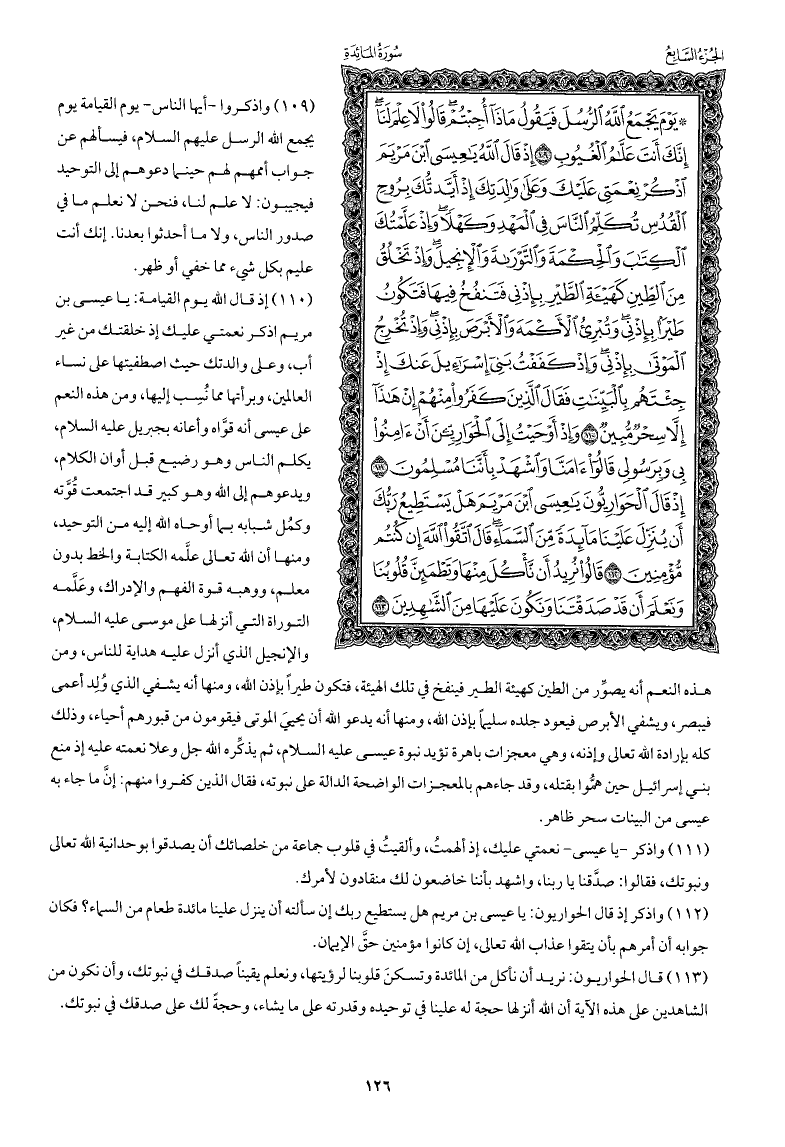 الجزء السابع
سورة المائدة
* يَوْمَ يَجْمَعُ ٱللَّهُ ٱلرُّسُلَ فَيَقُولُ مَاذَآ أُجِبْتُمْۖ قَالُوا۟ لَا عِلْمَ لَنَآۖ
إِنَّكَ أَنتَ عَلَّٰمُ ٱلْغُيُوبِ ١٠٩ إِذْ قَالَ ٱللَّهُ يَٰعِيسَى ٱبْنَ مَرْيَمَ
ٱذْكُرْ نِعْمَتِى عَلَيْكَ وَعَلَىٰ وَٰلِدَتِكَ إِذْ أَيَّدتُّكَ بِرُوحِ
ٱلْقُدُسِ تُكَلِّمُ ٱلنَّاسَ فِى ٱلْمَهْدِ وَكَهْلًاۖ وَإِذْ عَلَّمْتُكَ
ٱلْكِتَٰبَ وَٱلْحِكْمَةَ وَٱلتَّوْرَىٰةَ وَٱلْإِنجِيلَۖ وَإِذْ تَخْلُقُ
مِنَ ٱلطِّينِ كَهَيْـَٔةِ ٱلطَّيْرِ بِإِذْنِى فَتَنفُخُ فِيهَا فَتَكُونُ
طَيْرًۢا بِإِذْنِىۖ وَتُبْرِئُ ٱلْأَكْمَهَ وَٱلْأَبْرَصَ بِإِذْنِىۖ وَإِذْ تُخْرِجُ
ٱلْمَوْتَىٰ بِإِذْنِىۖ وَإِذْ كَفَفْتُ بَنِىٓ إِسْرَٰٓءِيلَ عَنكَ إِذْ
جِئْتَهُم بِٱلْبَيِّنَٰتِ فَقَالَ ٱلَّذِينَ كَفَرُوا۟ مِنْهُمْ إِنْ هَٰذَآ
إِلَّا سِحْرٌ مُّبِينٌ ١١٠ وَإِذْ أَوْحَيْتُ إِلَى ٱلْحَوَارِيِّـۧنَ أَنْ ءَامِنُوا۟
بِى وَبِرَسُولِى قَالُوٓا۟ ءَامَنَّا وَٱشْهَدْ بِأَنَّنَا مُسْلِمُونَ ١١١
إِذْ قَالَ ٱلْحَوَارِيُّونَ يَٰعِيسَى ٱبْنَ مَرْيَمَ هَلْ يَسْتَطِيعُ رَبُّكَ
أَن يُنَزِّلَ عَلَيْنَا مَآئِدَةً مِّنَ ٱلسَّمَآءِۖ قَالَ ٱتَّقُوا۟ ٱللَّهَ إِن كُنتُم
مُّؤْمِنِينَ ١١٢ قَالُوا۟ نُرِيدُ أَن نَّأْكُلَ مِنْهَا وَتَطْمَئِنَّ قُلُوبُنَا
وَنَعْلَمَ أَن قَدْ صَدَقْتَنَا وَنَكُونَ عَلَيْهَا مِنَ ٱلشَّٰهِدِينَ ١١٣
(١٠٩) واذكروا -أيها الناس- يوم القيامة يوم
يجمع الله الرسل عليهم السلام، فيسألهم عن
جواب أممهم لهم حينما دعوهم إلى التوحيد
فيجيبون: لا علم لنا، فنحن لا نعلم ما في
صدور الناس، ولا ما أحدثوا بعدنا. إنك أنت
عليم بكل شيء مما خفي أو ظهر.
(١١٠) إذ قال الله يوم القيامة: يا عيسى بن
مريم اذكر نعمتي عليك إذ خلقتك من غير
أب، وعلى والدتك حيث اصطفيتها على نساء
العالمين، وبرأتها مما نُسِب إليها، ومن هذه النعم
على عيسى أنه قوَّاه وأعانه بجبريل عليه السلام،
يكلم الناس وهو رضيع قبل أوان الكلام،
ويدعوهم إلى الله وهو كبير قد اجتمعت قُوَّته
وكمُل شبابه بما أوحاه الله إليه من التوحيد،
ومنها أن الله تعالى علَّمه الكتابة والخط بدون
معلم، ووهبه قوة الفهم والإدراك، وعَلَّمه
التوراة التي أنزلها على موسى عليه السلام،
والإنجيل الذي أنزل عليه هداية للناس، ومن
هذه النعم أنه يصوِّر من الطين كهيئة الطير فينفخ في تلك الهيئة، فتكون طيراً بإذن الله، ومنها أنه يشفي الذي وُلِد أعمى
فيبصر، ويشفي الأبرص فيعود جلده سليماً بإذن الله، ومنها أنه يدعو الله أن يحييَ الموتى فيقومون من قبورهم أحياء، وذلك
كله بإرادة الله تعالى وإذنه، وهي معجزات باهرة تؤيد نبوة عيسى عليه السلام، ثم يذكِّره الله جل وعلا نعمته عليه إذ منع
بني إسرائيل حين همُّوا بقتله، وقد جاءهم بالمعجزات الواضحة الدالة على نبوته، فقال الذين كفروا منهم: إنَّ ما جاء به
عيسى من البينات سحر ظاهر.
(١١١) واذكر -يا عيسى- نعمتي عليك، إذ ألهمتُ، وألقيتُ في قلوب جماعة من خلصائك أن يصدقوا بوحدانية الله تعالى
ونبوتك، فقالوا: صدَّقنا يا ربنا، واشهد بأننا خاضعون لك منقادون لأمرك.
(١١٢) واذكر إذ قال الحواريون: يا عيسى بن مريم هل يستطيع ربك إن سألته أن ينزل علينا مائدة طعام من السماء؟ فكان
جوابه أن أمرهم بأن يتقوا عذاب الله تعالى، إن كانوا مؤمنين حقَّ الإيمان.
(١١٣) قال الحواريون: نريد أن نأكل من المائدة وتسكنَ قلوبنا لرؤيتها، ونعلم يقيناً صدقك في نبوتك، وأن نكون من
الشاهدين على هذه الآية أن الله أنزلها حجة له علينا في توحيده وقدرته على ما يشاء، وحجةً لك على صدقك في نبوتك.
١٢٦